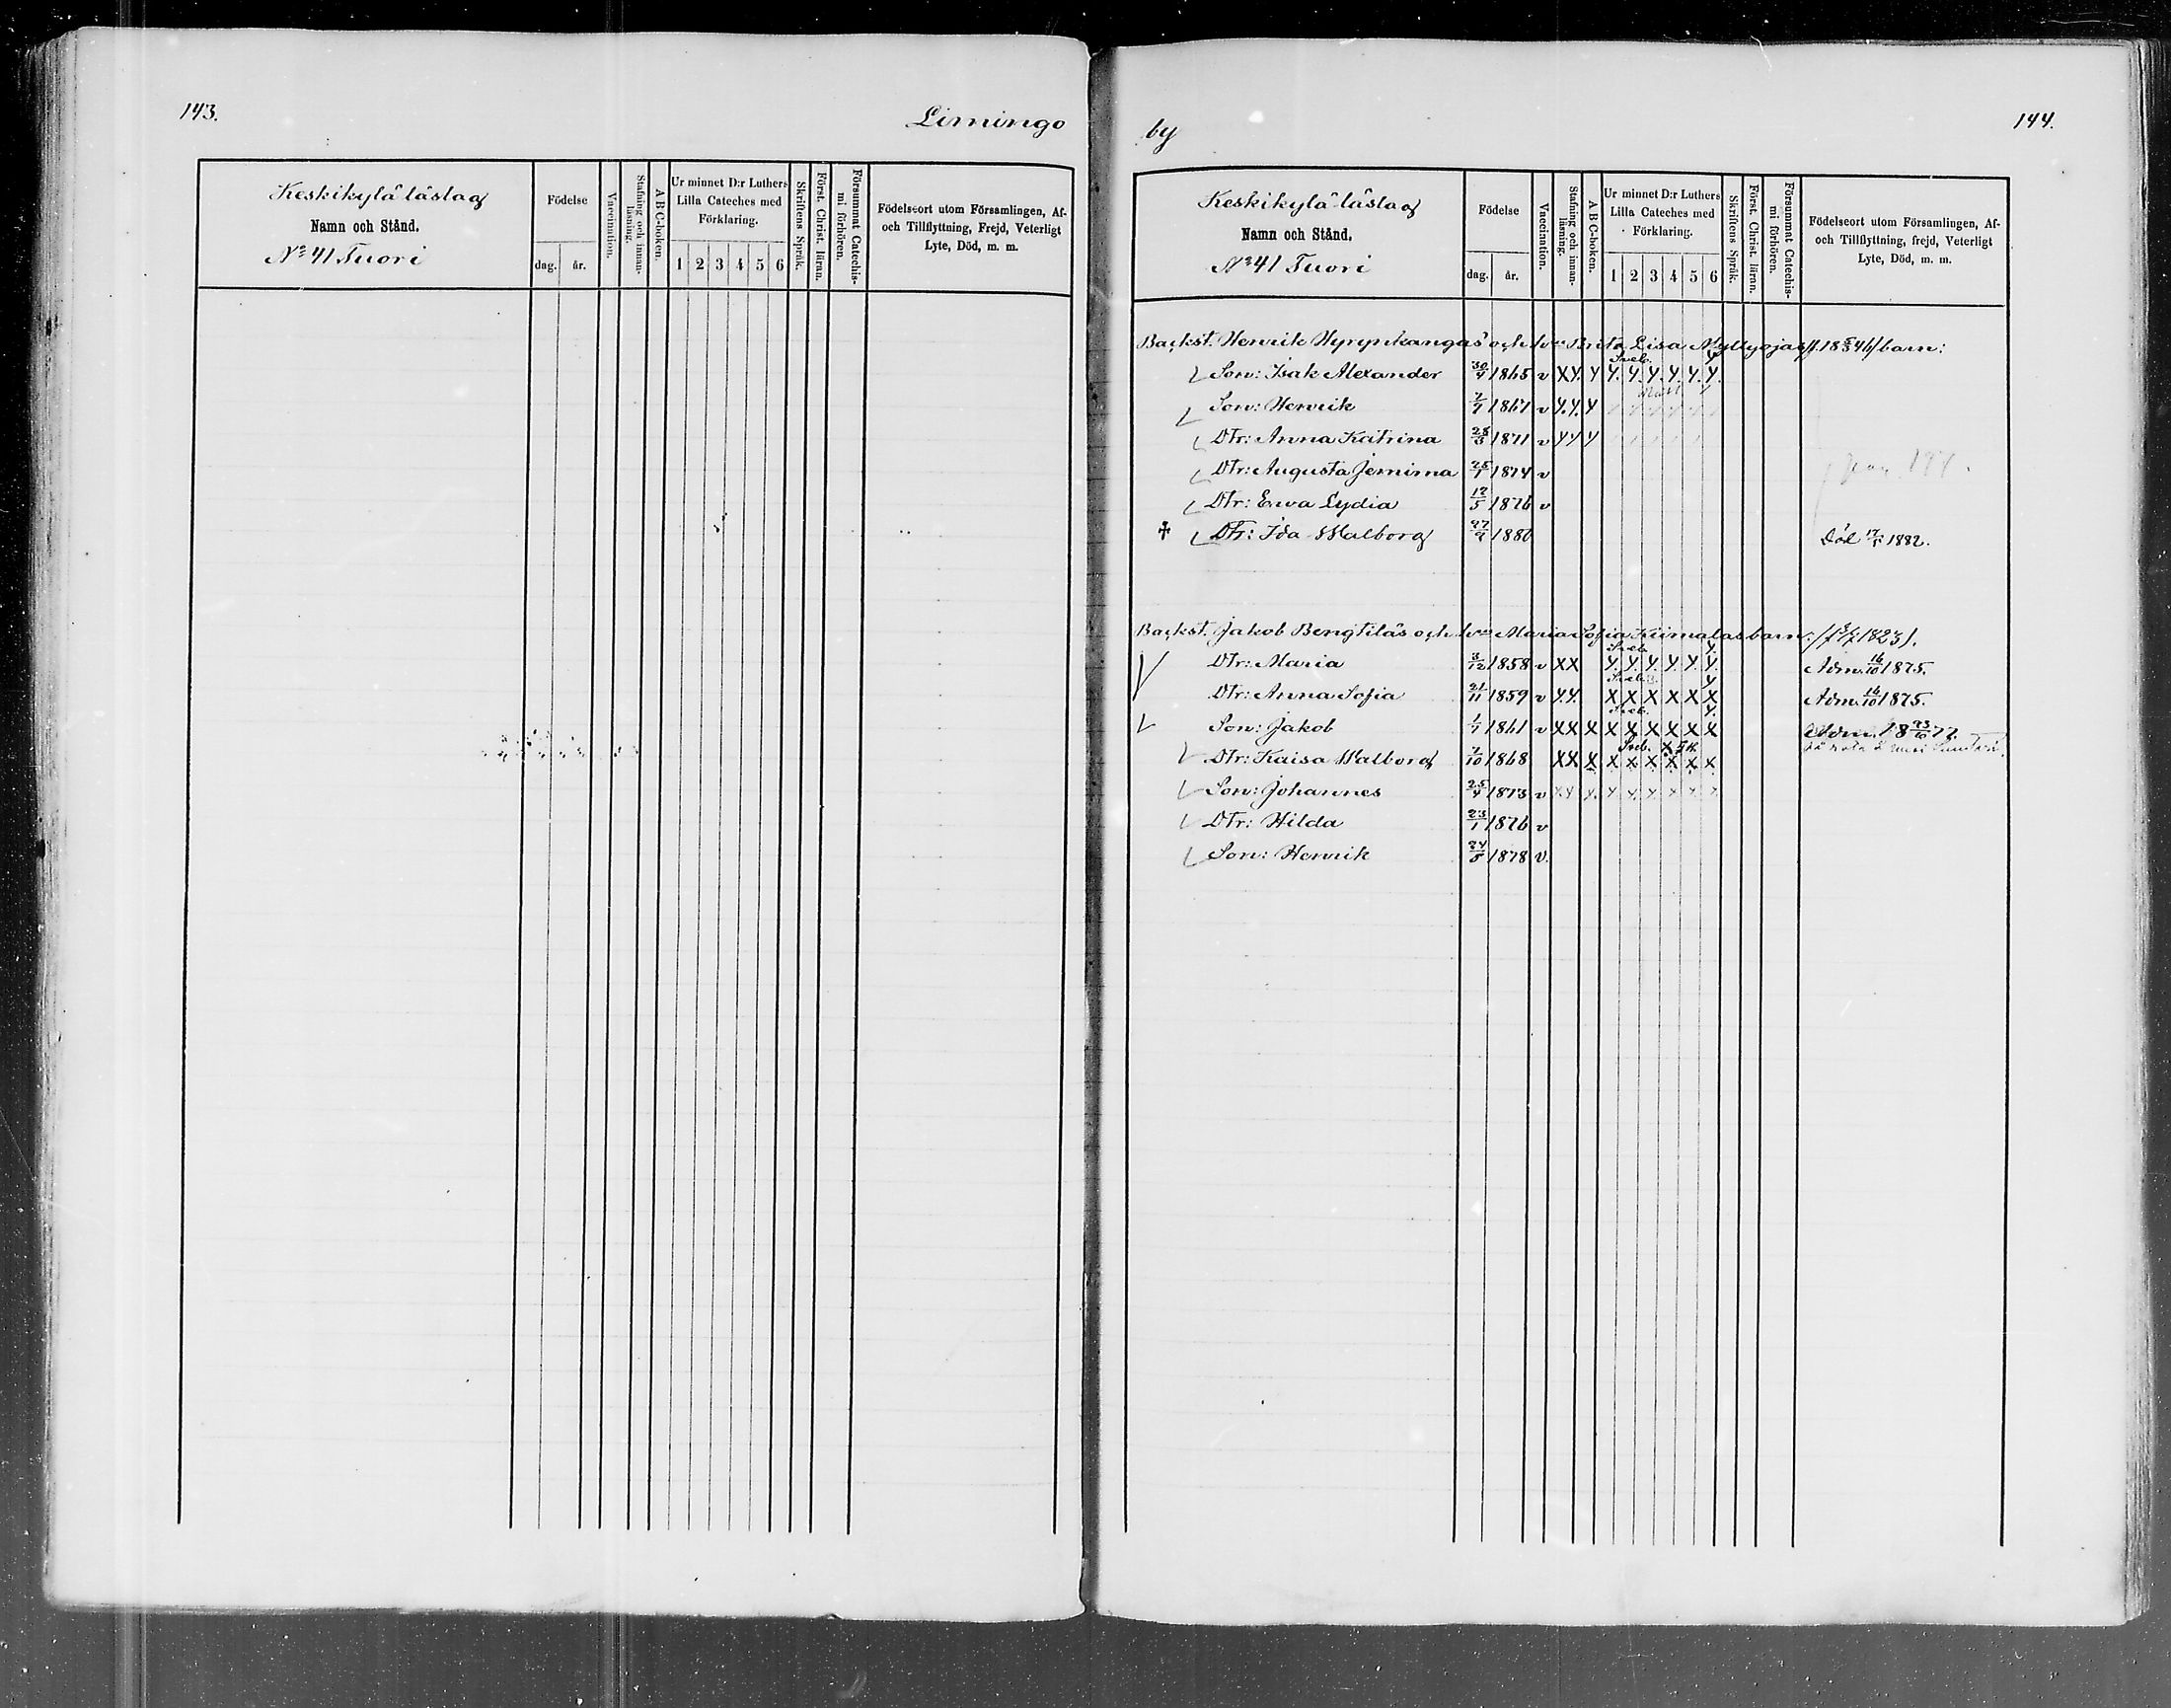 143.
Limingo
Keskikylä läslag
Namn och Stånd.
No 41 Tuori
Födelse
dag. år.
Vaccination.
Stafning och innanläsning.
A B C-boken.
Ur minnet D:r Luthers
Lilla Cateches med
Förklaring.
1 2 3 4 5 6
Skriftens Språk.
Först. Christ. läran.
Försummat Catechismi förhören.
Födelseort utom Församlingen, Af-
och Tillflyttning, Frejd, Veterligt
Lyte, Död, m. m.
by
144.
Keskikylä läslag
Namn och Stånd.
No 41 Tuori
Födelse
dag. år.
Vaccination.
Stafning och innanläsning.
A B C-boken.
Ur minnet D:r Luthers
Lilla Cateches med
Förklaring.
1 2 3 4 5 6
Skriftens Språk.
Först. Christ. läran.
Försummat Catechismi förhören.
Födelseort utom Församlingen, Af-
och Tillflyttning, frejd, Veterligt
Lyte, Död, m. m.
Backst. Henrik Hyrynkangas och Brita Lisa Myllyojas barn:
Son: Isak Alexander 30/9 1865 v
Son: Henrik 1867 v
Dtr: Anna Katrina 28/3 1871 v
Dtr: Augusta Jemima 25/1 1874 v
Dtr: Ewa Lydia 1876 v
Dtr: Ida Walborg 1880 Död 1882.
Backst. Jakob Bengtiläs och Maria Sofia Kiimalas barn:
Dtr: Maria 3/12 1858 v XX Adm. 16/10 1875.
Dtr: Anna Sofia 21/11 1859 v X X X X X X Adm. 16/10 1875.
Son: Jakob 1861 v XX X X X X X X X
Dtr: Kaisa Walborg 7/10 1868 XX X X X X X X X
Son: Johannes 25/4 1873 v
Dtr: Hilda 23/1 1876 v
Son: Henrik 24/5 1878 v.